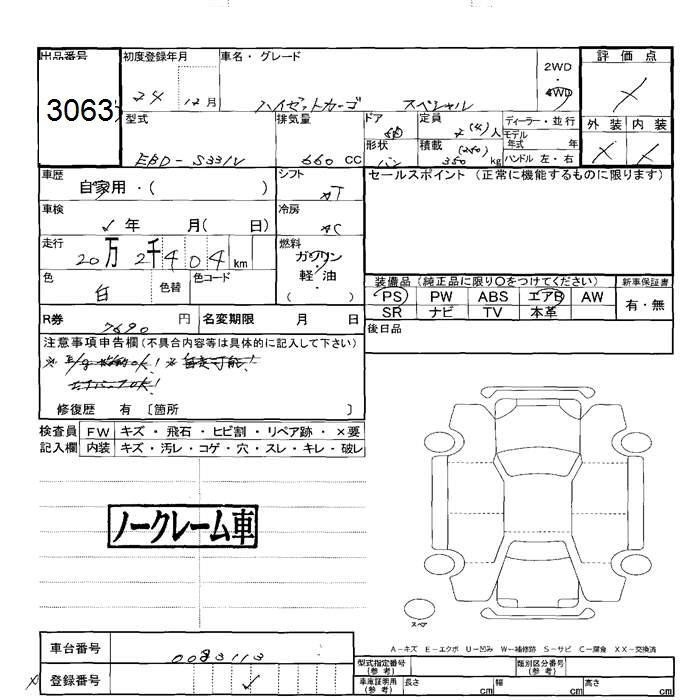 出品番号 初度登録年月 車名・グレード 2WD・4WD 評価点
3063 24 12月 ハイゼットカーゴ スペシャル ×
型式 排気量 ドア 定員 ディーラー・並行 外装 内装
EBD-S331V 660 CC 5D 2(4)人 モデル年式 年 × ×
形状 バン 積載 (250) 350 kg ハンドル 左・右
車歴 自家用・( ) シフト AT セールスポイント (正常に機能するものに限ります)
車検 年 月( 日) 冷房 AC
走行 20万2千404km 燃料 ガソリン・軽・油 ( )
色 白 色替 色コード
装備品 (純正品に限り○をつけてください) 新車保証書
PS PW ABS エアB AW 有・無
SR ナビ TV 本革
R券 7690円 名変期限 月 日 後日品
注意事項申告欄(不具合内容等は具体的に記入して下さい)
修復歴 有 〔箇所 〕
検査員 FW キズ・飛石・ヒビ割・リペア跡・×要
記入欄 内装 キズ・汚レ・コゲ・穴・スレ・キレ・破レ
ノークレーム車
スペア
A-キズ E-エクボ U-凹み W-補修跡 S-サビ C-腐食 XX-交換済
車台番号 0083113
登録番号
型式指定番号(参考) 類別区分番号(参考)
車庫証明用(参考) 長さ cm 幅 cm 高さ cm